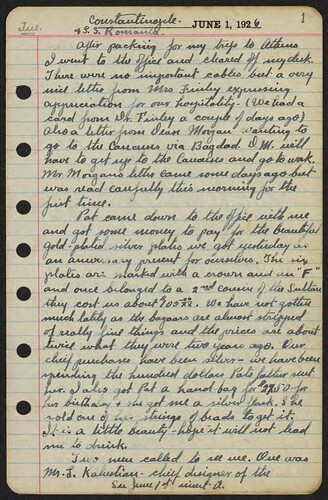 Tue.
Constantinople.
& S.S. Romania.
JUNE 1, 1926
1
After packing for my trip to Athens
I went to the office and cleared off my desk.
There were no important cables but a very
nice letter from Mrs Finley expressing
appreciation for our hospitality - (We had a
card from Dr. Finley a couple of days ago)
Also a letter from Dean Morgan wanting to
go to the Caucasus via Bagdad. D.M. will
have to get up to the Caucasus and go to work.
Mr Morgans letter came some days ago but
was read carefully this morning for the
first time.
Pat came down to the office with me
and got some money to pay for the beautiful
gold-plated silver plates we got yesterday as
an aniversary present for ourselves. The six
plates are marked with a crown and an "F"
and once belonged to a 2nd cousin of the Sultan
they cost us about $105.00. We have not gotten
much lately as the bazaars are almost stripped
of really fine things and the prices are about
twice what they were two years ago. Our
chief purchases have been silver - we have been
spending the hundred dollars Pats father sent
her. I also got Pat a hand bag for for
his birthday & she got me a silver flask. She
sold one of her strings of beads to get it.
It is a little beauty - hope it will not lead
me to drink.
Two men called to see me. One was
Mr. L. chief designer of the
See June 1st insert A.